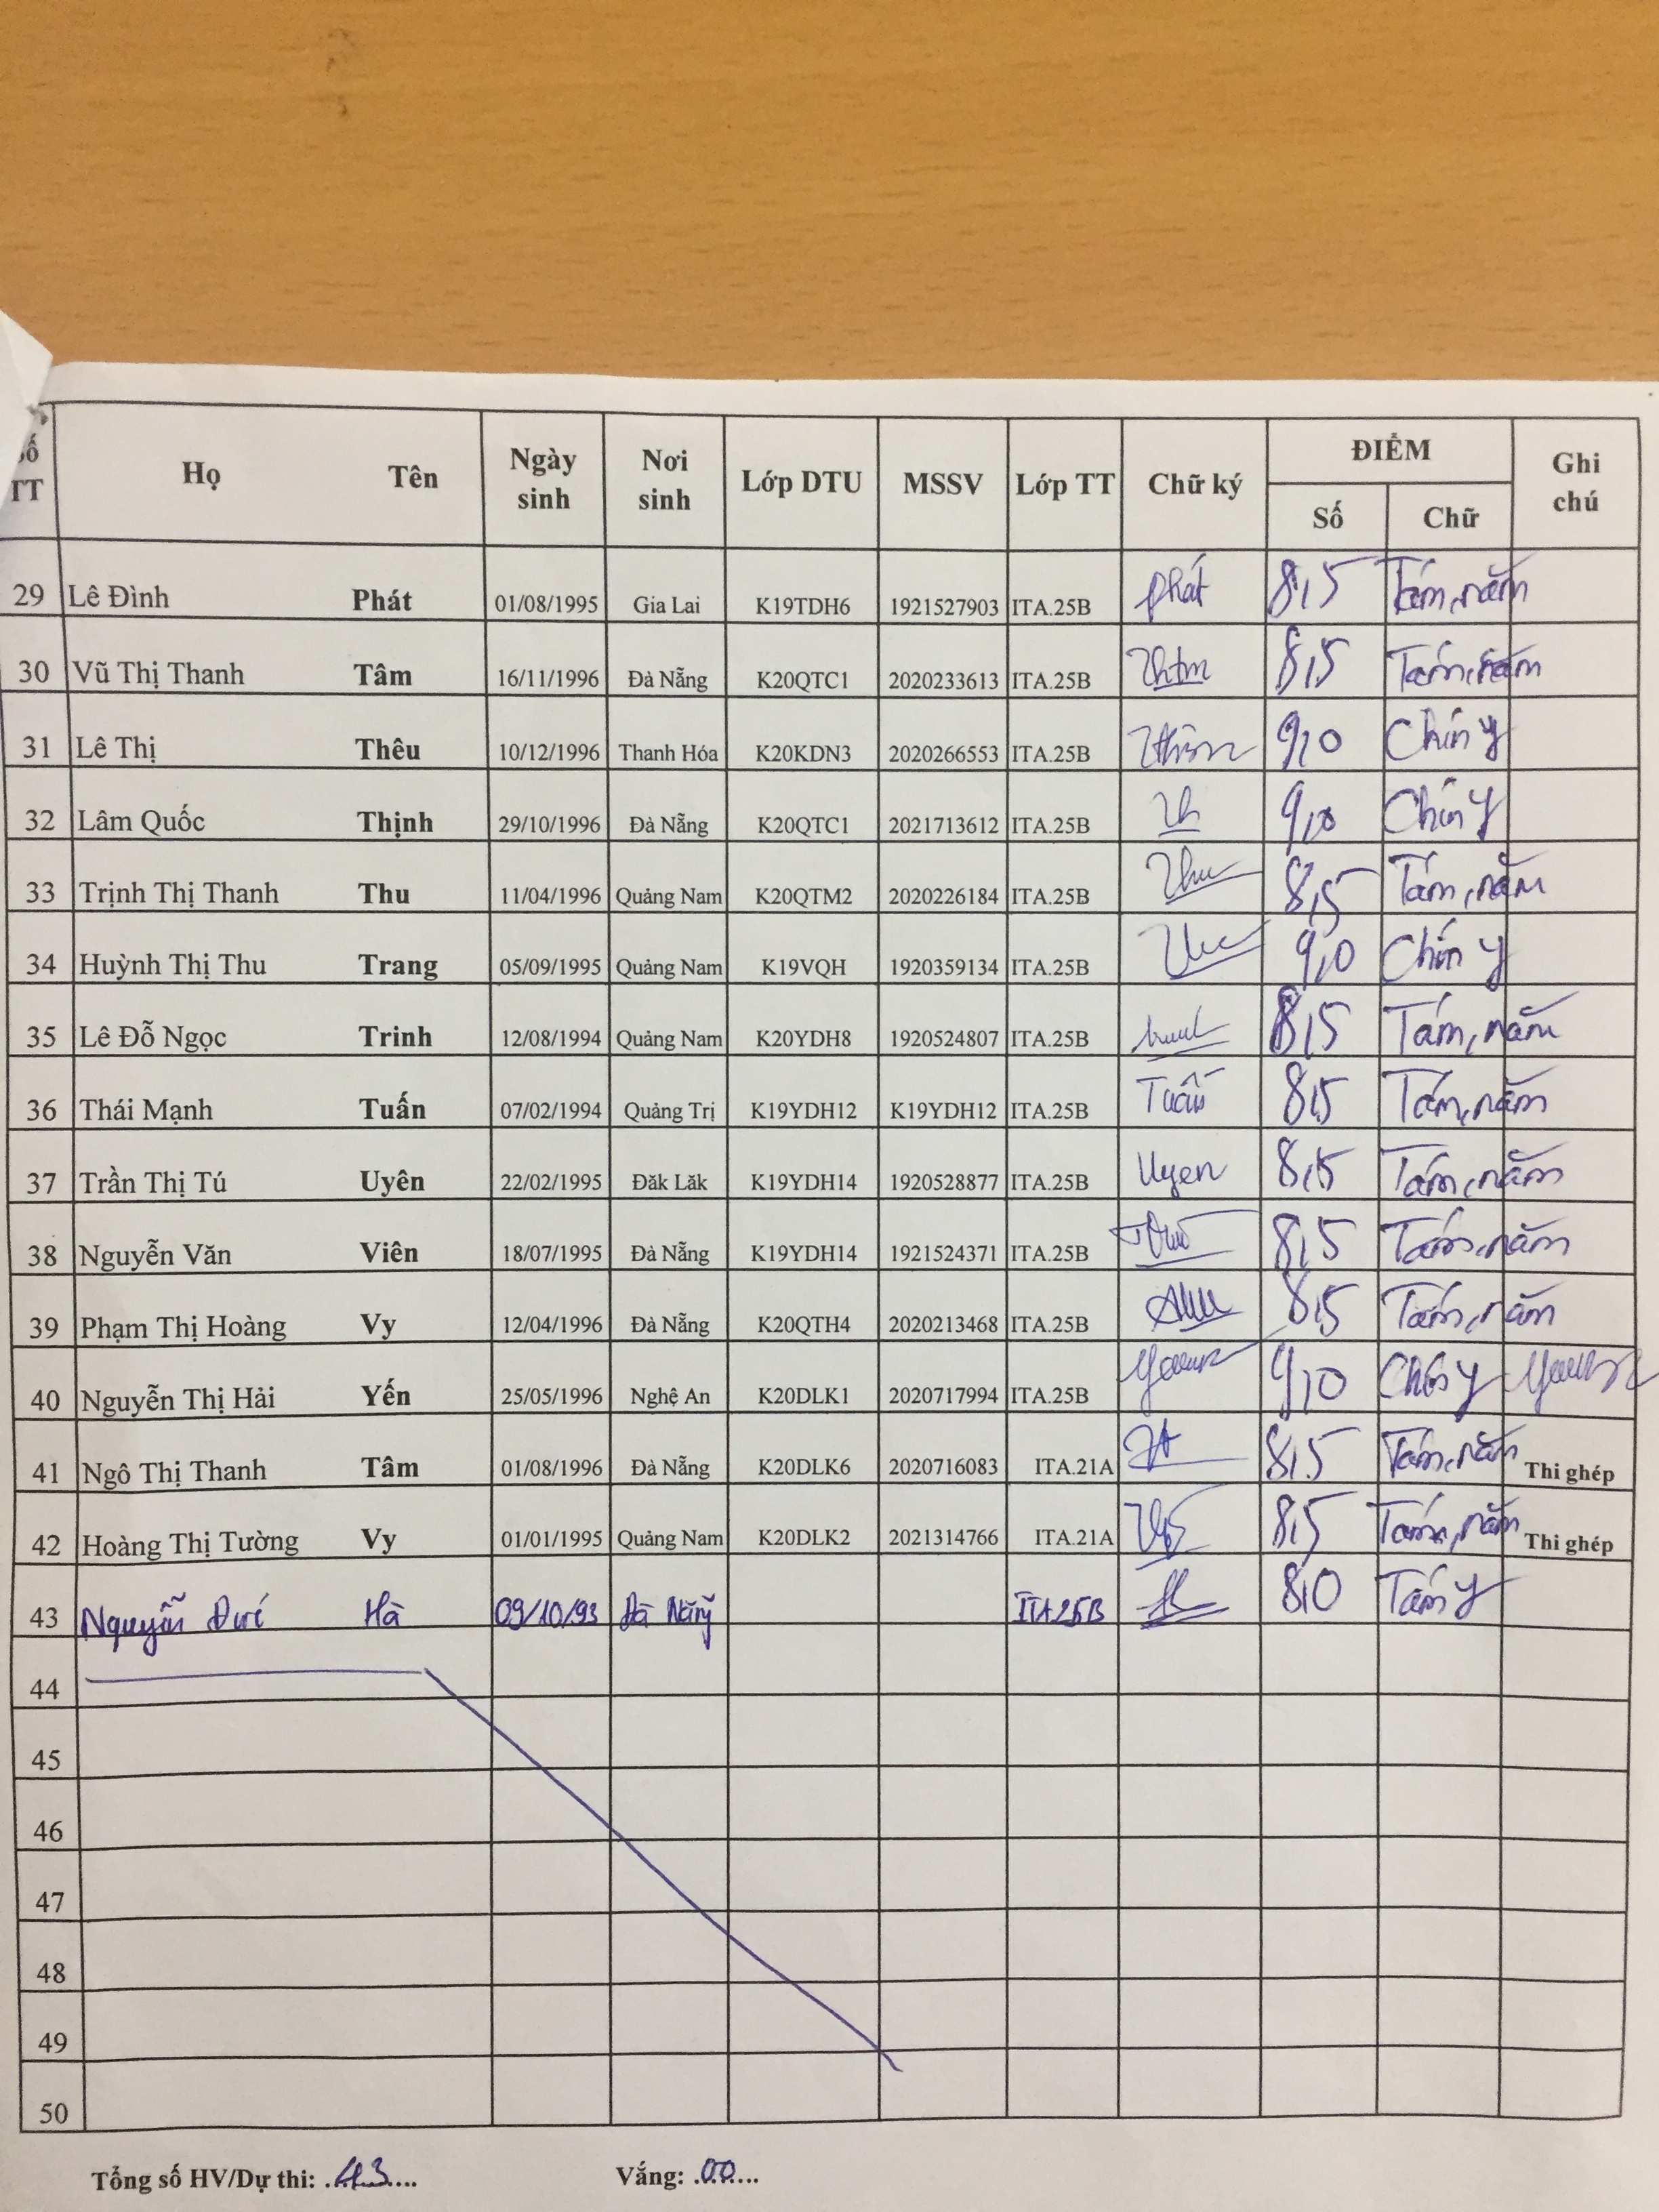 Số TT Họ Tên Ngày sinh Nơi sinh Lớp DTU MSSV Lớp TT Chữ ký ĐIỂM Ghi chú
Số Chữ
29 Lê Đình Phát 01/08/1995 Gia Lai K19TDH6 1921527903 ITA.25B Phát 8,5 Tám, năm
30 Vũ Thị Thanh Tâm 16/11/1996 Đà Nẵng K20QTC1 2020233613 ITA.25B 8,5 Tám, năm
31 Lê Thị Thêu 10/12/1996 Thanh Hóa K20KDN3 2020266553 ITA.25B 9,0 Chín y
32 Lâm Quốc Thịnh 29/10/1996 Đà Nẵng K20QTC1 2021713612 ITA.25B 9,0 Chín y
33 Trịnh Thị Thanh Thu 11/04/1996 Quảng Nam K20QTM2 2020226184 ITA.25B Thu 8,5 Tám, năm
34 Huỳnh Thị Thu Trang 05/09/1995 Quảng Nam K19VQH 1920359134 ITA.25B 9,0 Chín y
35 Lê Đỗ Ngọc Trinh 12/08/1994 Quảng Nam K20YDH8 1920524807 ITA.25B 8,5 Tám, năm
36 Thái Mạnh Tuấn 07/02/1994 Quảng Trị K19YDH12 K19YDH12 ITA.25B Tuấn 8,5 Tám, năm
37 Trần Thị Tú Uyên 22/02/1995 Đăk Lăk K19YDH14 1920528877 ITA.25B Uyen 8,5 Tám, năm
38 Nguyễn Văn Viên 18/07/1995 Đà Nẵng K19YDH14 1921524371 ITA.25B 8,5 Tám, năm
39 Phạm Thị Hoàng Vy 12/04/1996 Đà Nẵng K20QTH4 2020213468 ITA.25B 8,5 Tám, năm
40 Nguyễn Thị Hải Yến 25/05/1996 Nghệ An K20DLK1 2020717994 ITA.25B 9,0 Chín y
41 Ngô Thị Thanh Tâm 01/08/1996 Đà Nẵng K20DLK6 2020716083 ITA.21A 8,5 Tám, năm Thi ghép
42 Hoàng Thị Tường Vy 01/01/1995 Quảng Nam K20DLK2 2021314766 ITA.21A 8,5 Tám, năm Thi ghép
43 Nguyễn Đức Hà 09/10/93 Đà Nẵng ITA25B 8,0 Tám y
44
45
46
47
48
49
50
Tổng số HV/Dự thi: ..43.... Vắng: .00....